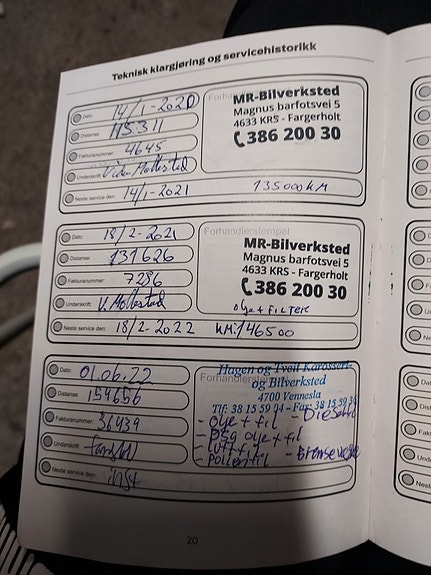 Teknisk klargjøring og servicehistorikk
Dato: 14/1-2020
Distanse: 115311
Fakturanummer: 4645
Underskrift:
Neste service den: 14/1-2021 135000KM
MR-Bilverksted
Magnus barfotsvei 5
4633 KRS - Fargerholt
386 200 30
Dato: 18/2-2021
Distanse: 131626
Fakturanummer: 7286
Underskrift: V. Mollestad
Neste service den: 18/2-2022 KM:146500
Forhandlerstempel
MR-Bilverksted
Magnus barfotsvei 5
4633 KRS - Fargerholt
386 200 30
olje + FILTER
Dato: 01.06.22
Distanse: 154656
Fakturanummer: 36439
Underskrift:
Neste service den: inst
Hagen og Tveit Karosseri
og Bilverksted
4700 Vennesla
Tlf: 38 15 59 04 - Fax: 38 15 59
- Olje + fil
- DSG olje + fil
- Luftfil
- Pollenfil
20